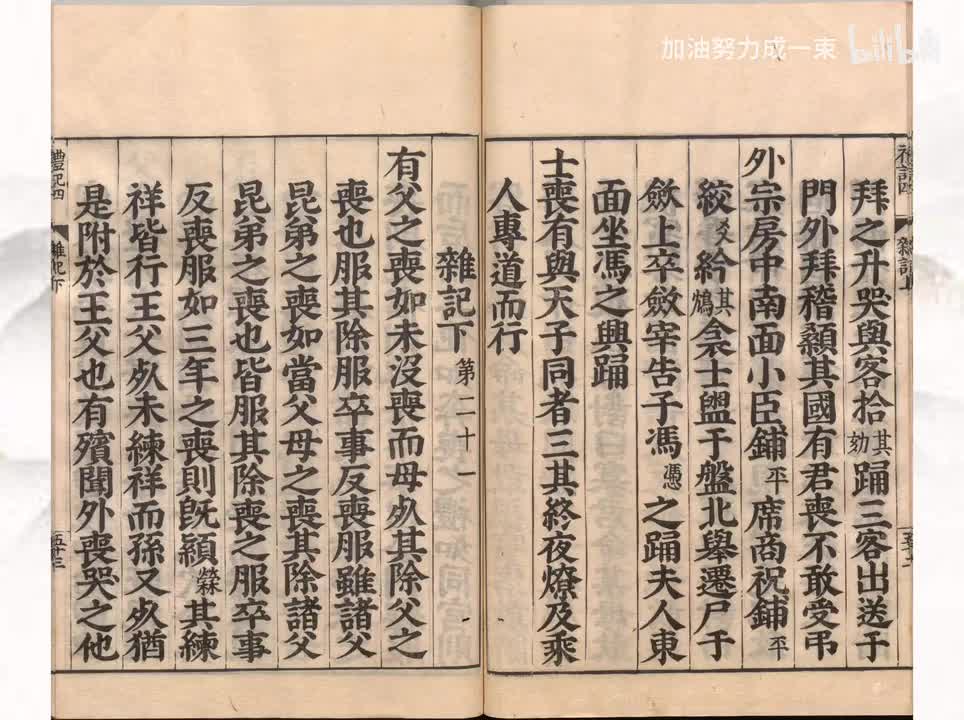 加油努力成一束 bilibili
禮記四 雜記上
拜之升哭與客拾其劫踊三客出送于
門外拜稽顙其國有君喪不敢受弔
外宗房中南面小臣鋪平席商祝鋪平
絞爻紟其鴆衾士盥于盤北舉遷尸于
斂上卒斂宰告子馮憑之踊夫人東
面坐馮之興踊
士喪有與天子同者三其終夜燎及乘
人專道而行
雜記下第二十一
有父之喪如未沒喪而母死其除父之
喪也服其除服卒事反喪服雖諸父
昆弟之喪如當父母之喪其除諸父
昆弟之喪也皆服其除喪之服卒事
反喪服如三年之喪則旣顈檾其練
祥皆行王父死未練祥而孫又死猶
是附於王父也有殯聞外喪哭之他
禮記四 雜記下 五十三